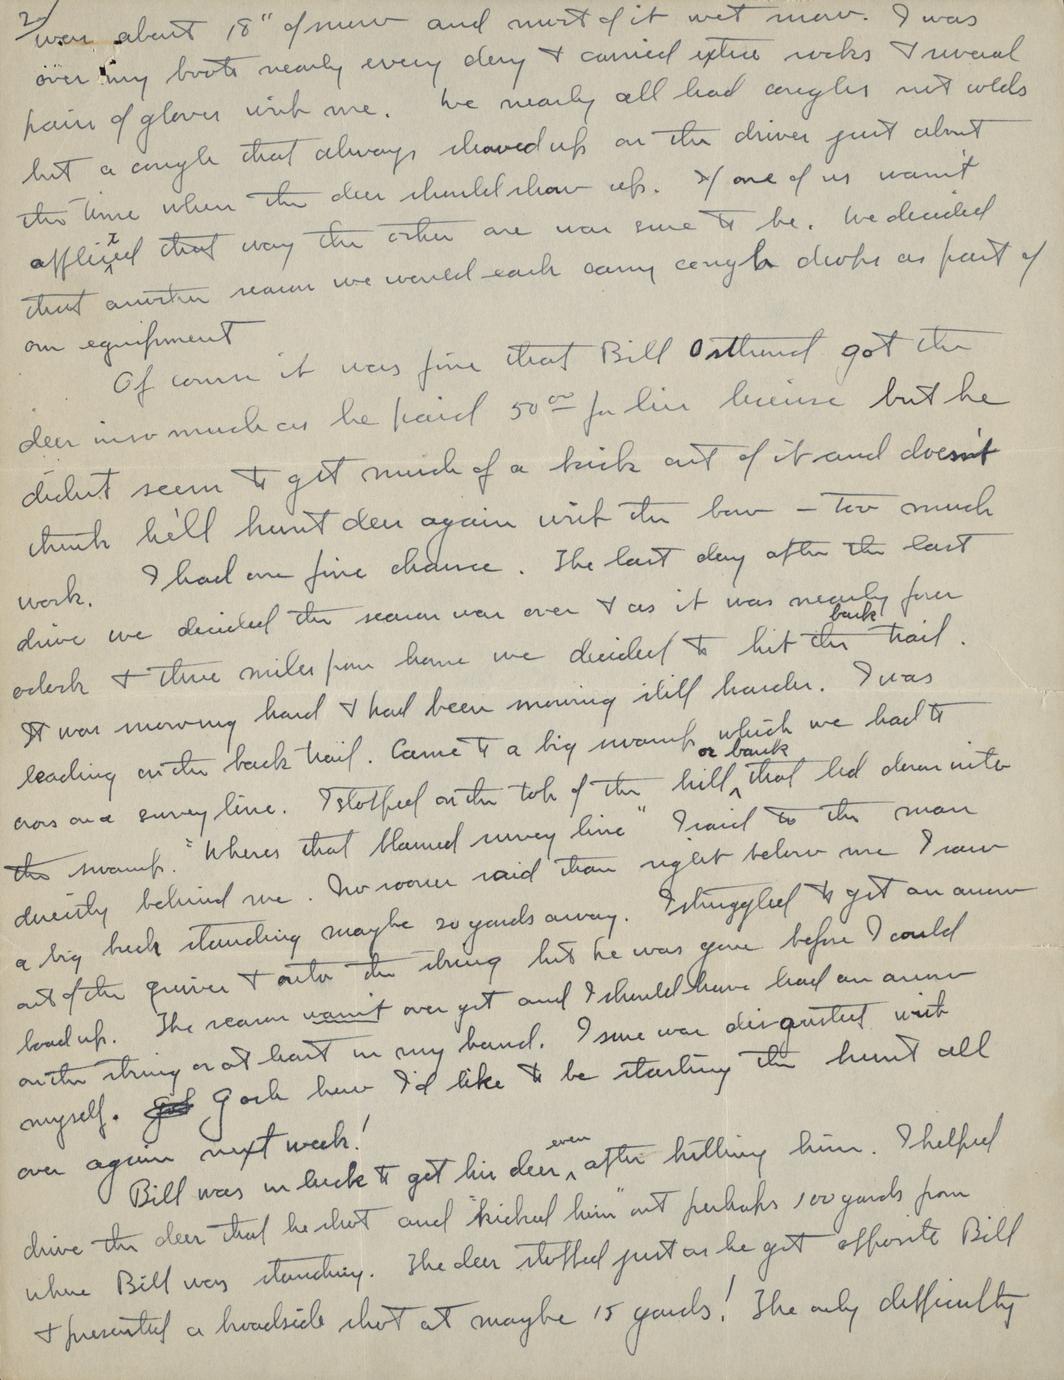 2/
was about 18" of snow and most of it wet snow. I was
over my boots nearly every day & carried extra socks & several
pairs of gloves with me. We nearly all had coughs not colds
but a cough that always showed up on the drives just about
the time when the deer should show up. If one of us wasn't
afflicted that way the other one was sure to be. We decided
that another season we would each carry cough drops as part of
our equipment
Of course it was fine that Bill Osthund got the
deer inso much as he paid 50 00 for his license but he
didn't seem to get much of a kick out of it and doesn't
think he'll hunt deer again with the bow - too much
work. I had one fine chance. The last day after the last
drive we decided the season was over & as it was nearly four
oclock & three miles from home we decided to hit the back trail.
It was snowing hard & had been snowing still harder. I was
leading on the back trail. Came to a big swamp which we had to
cross on a survey line. I stopped on the top of the hill or bank that led down into
the swamp. "Wheres that blamed survey line" I said to the man
directly behind me. No sooner said than right below me I saw
a big buck standing maybe 20 yards away. I struggled to get an arrow
out of the quiver & onto the string but he was gone before I could
load up. The season wasn't over yet and I should have had an arrow
on the string or at least in my hand. I sure was disgusted with
myself. Gosh how I'd like to be starting the hunt all
over again next week!
Bill was in luck to get his deer even after hitting him. I helped
drive the deer that he shot and "kicked him" out perhaps 100 yards from
where Bill was standing. The deer stopped just as he got opposite Bill
& presented a broadside shot at maybe 15 yards! The only difficulty